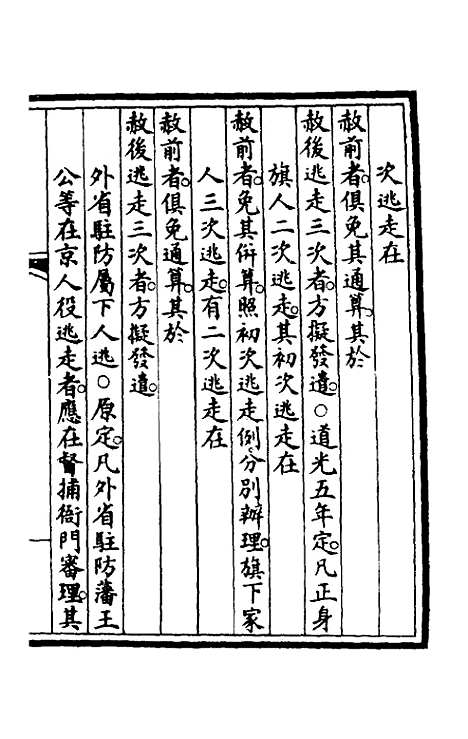 次逃走在
赦前者。俱免其通算。其於
赦後逃走三次者。方擬發遣。○道光五年定。凡正身
旗人二次逃走。其初次逃走在
赦前者。免其併算。照初次逃走例分別辦理。旗下家
人三次逃走。有二次逃走在
赦前者。俱免通算。其於
赦後逃走三次者。方擬發遣。
外省駐防屬下人逃○原定。凡外省駐防藩王
公等在京人役逃走者。應在督捕衙門審理。其